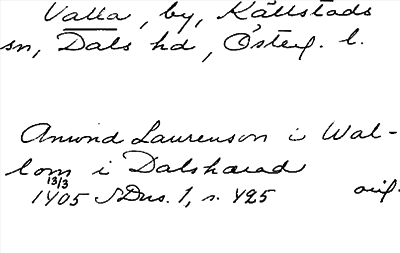 Valla, by, Källstads
sn, Dals hd, Österg. l.
Anund Laurenson i Wal-
lom i Dalshærad
13/3
1405 SDns. 1, s. 425 orig.